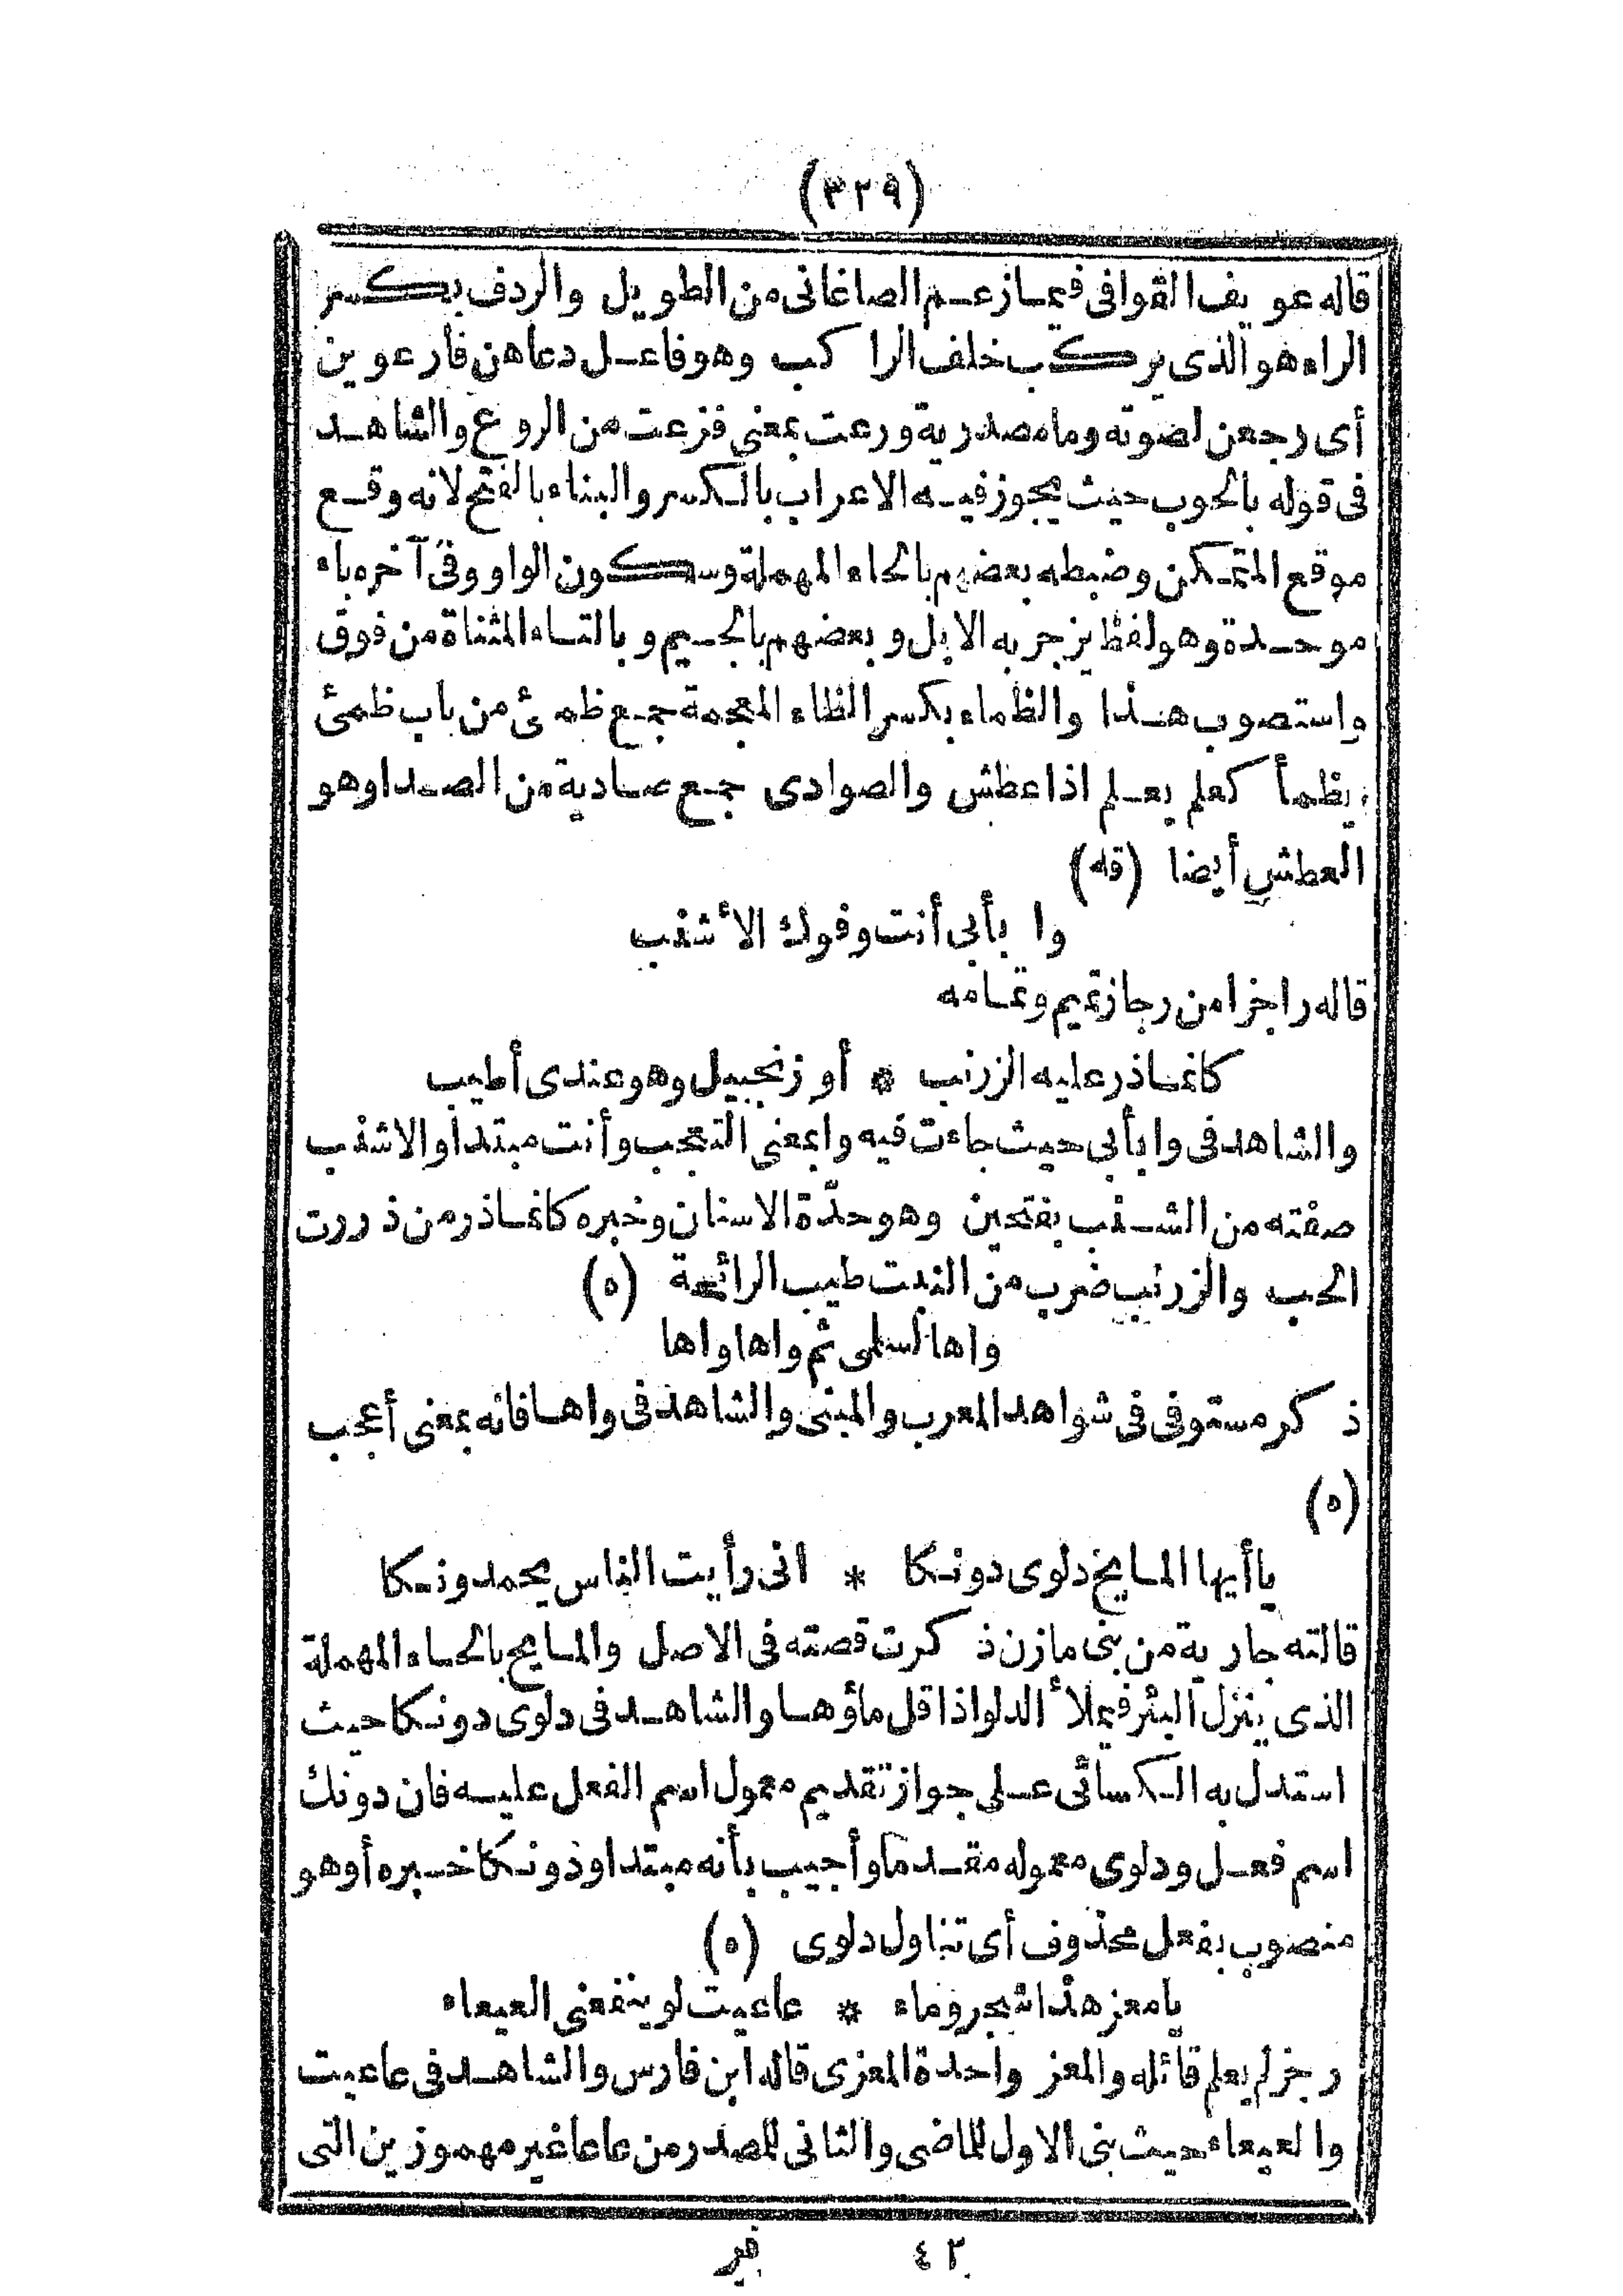 (٣٢٩)
قاله عويف القوافى فيما زعم الصاغانى من الطويل والردف بكسر
الراء هو الذى يركب خلف الراكب وهو فاعل دعاهن فارعوين
أى رجعن لصوته وما مصدرية ورعت بمعنى فزعت من الروع والشاهد
فى قوله بالحوب حيث يجوز فيه الاعراب بالكسر والبناء بالفتح لانه وقع
موقع المتمكن وضبطه بعضهم بالحاء المهملة وسكون الواو وفى آخره باء
موحدة وهو لفظ يزجر به الابل وبعضهم بالجيم وبالتاء المثناة من فوق
واستصوب هذا والظماء بكسر الظاء المعجمة جمع ظمئ من باب ظمئ
يظمأ كعلم يعلم اذا عطش والصوادى جمع صادية من الصدا وهو
العطش أيضا (قه)
وا بأبى أنت وفوك الأشنب
قاله راجزا من رجاز تميم وتمامه
كانما ذر عليه الزرنب * أو زنجبيل وهو عندى أطيب
والشاهد فى وا بأبى حيث جاءت فيه وا بمعنى التعجب وأنت مبتدأ والاشنب
صفته من الشنب بفتحين وهو حدّة الاسنان وخبره كانما ذر من ذررت
الحب والزرنب ضرب من النبت طيب الرائحة (ه)
واها لسلمى ثم واها واها
ذكر مستوفى فى شواهد المعرب والمبنى والشاهد فى واها فانه بمعنى أعجب
(ه)
يا أيها المايح دلوى دونكا * انى رأيت الناس يحمدونكا
قالته جارية من بنى مازن ذكرت قصته فى الاصل والمايح بالحاء المهملة
الذى ينزل البئر فيملأ الدلو اذا قل ماؤها والشاهد فى دلوى دونكا حيث
استدل به الكسائى على جواز تقديم معمول اسم الفعل عليه فان دونك
اسم فعل ودلوى معموله مقدما وأجيب بأنه مبتدا ودونكا خبره أو هو
منصوب بفعل محذوف أى تناول دلوى (ه)
يا معز هذا شجر وماء * عاعيت لو ينفعنى العيعاء
رجز لم يعلم قائله والمعز واحدة المعزى قاله ابن فارس والشاهد فى عاعيت
والعيعاء حيث بنى الاول للماضى والثانى للمصدر من عاعا غير مهموزين التى
٤٢